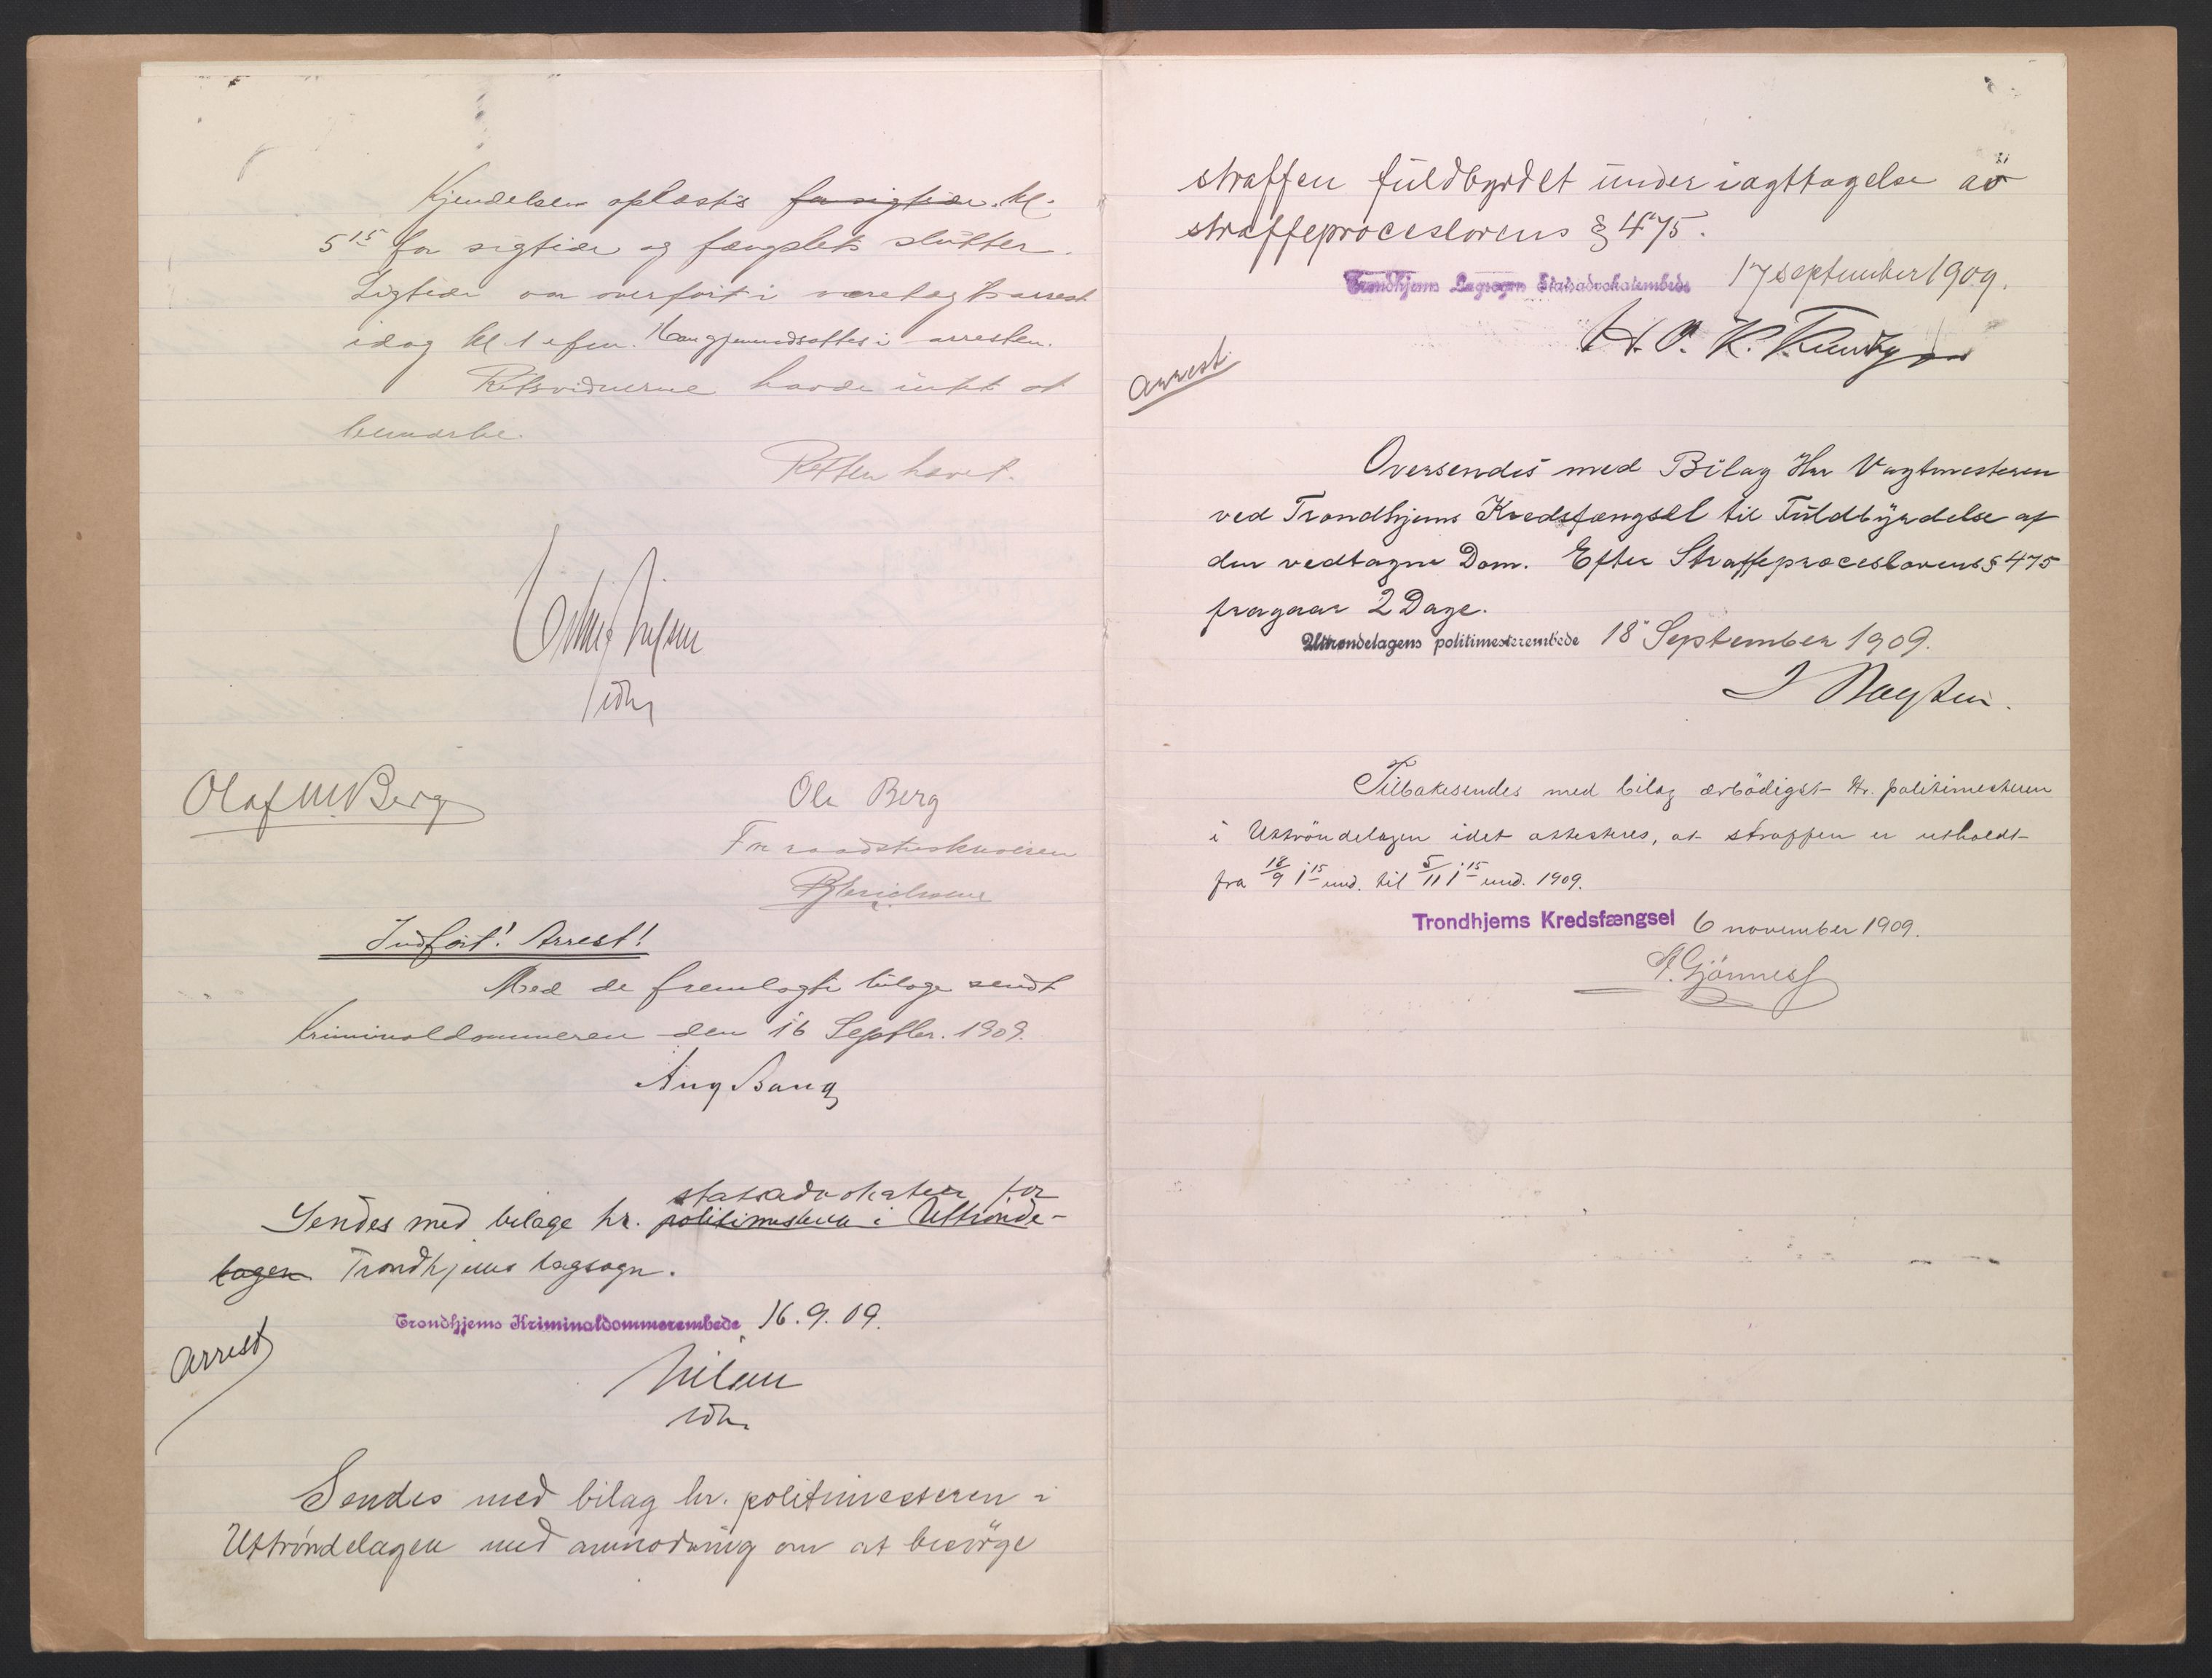 Kjendelsen oplæstis for sigtede. kl.
5 15 for sigtede og fængslets slutter.
Sigtede var overført i varetægtsarrest
idag kl. 1 efm. Han gjenindsættes i arresten.
Retsvidnerne havde intet at
bemærke.
Retten hævet.
Nilsen
Olaf M Berg
Ole Berg
For raadstuskriveren
Indført! Arrest!
Med de fremlagte bilage sendt
Kriminaldommeren den 16 Septbr. 1909.
Aug Bang
statsadvokaten for
Sendes med bilage hr. politimesteren i Uttrønde-
lagen Trondhjems lagsogn.
Trondhjems Kriminaldommerembede 16.9.09.
Arrest
Nilsen
Sendes med bilag hr. politimesteren i
Uttrøndelagen med anmodning om at besørge
straffen fuldbyrdet under iagttagelse av
straffeproceslovens § 475.
Trondhjems Lagsogns Statsadvokatembede 17 september 1909.
Arrest
Oversendes med Bilag Hr Vagtmesteren
ved Trondhjems Kredsfængsel til Fuldbyrdelse af
den vedtagne Dom. Efter Straffeproceslovens § 475
fragaar 2 Dage.
Uttrøndelagens politimesterembede 18 September 1909.
Tilbakesendes med bilag ærbödigst Hr. politimesteren
i Uttröndelagen idet attesteres, at straffen er utholdt
fra 18/9 1 15 emd. til 5/11 1 15 emd. 1909.
Trondhjems Kredsfængsel 6 november 1909.